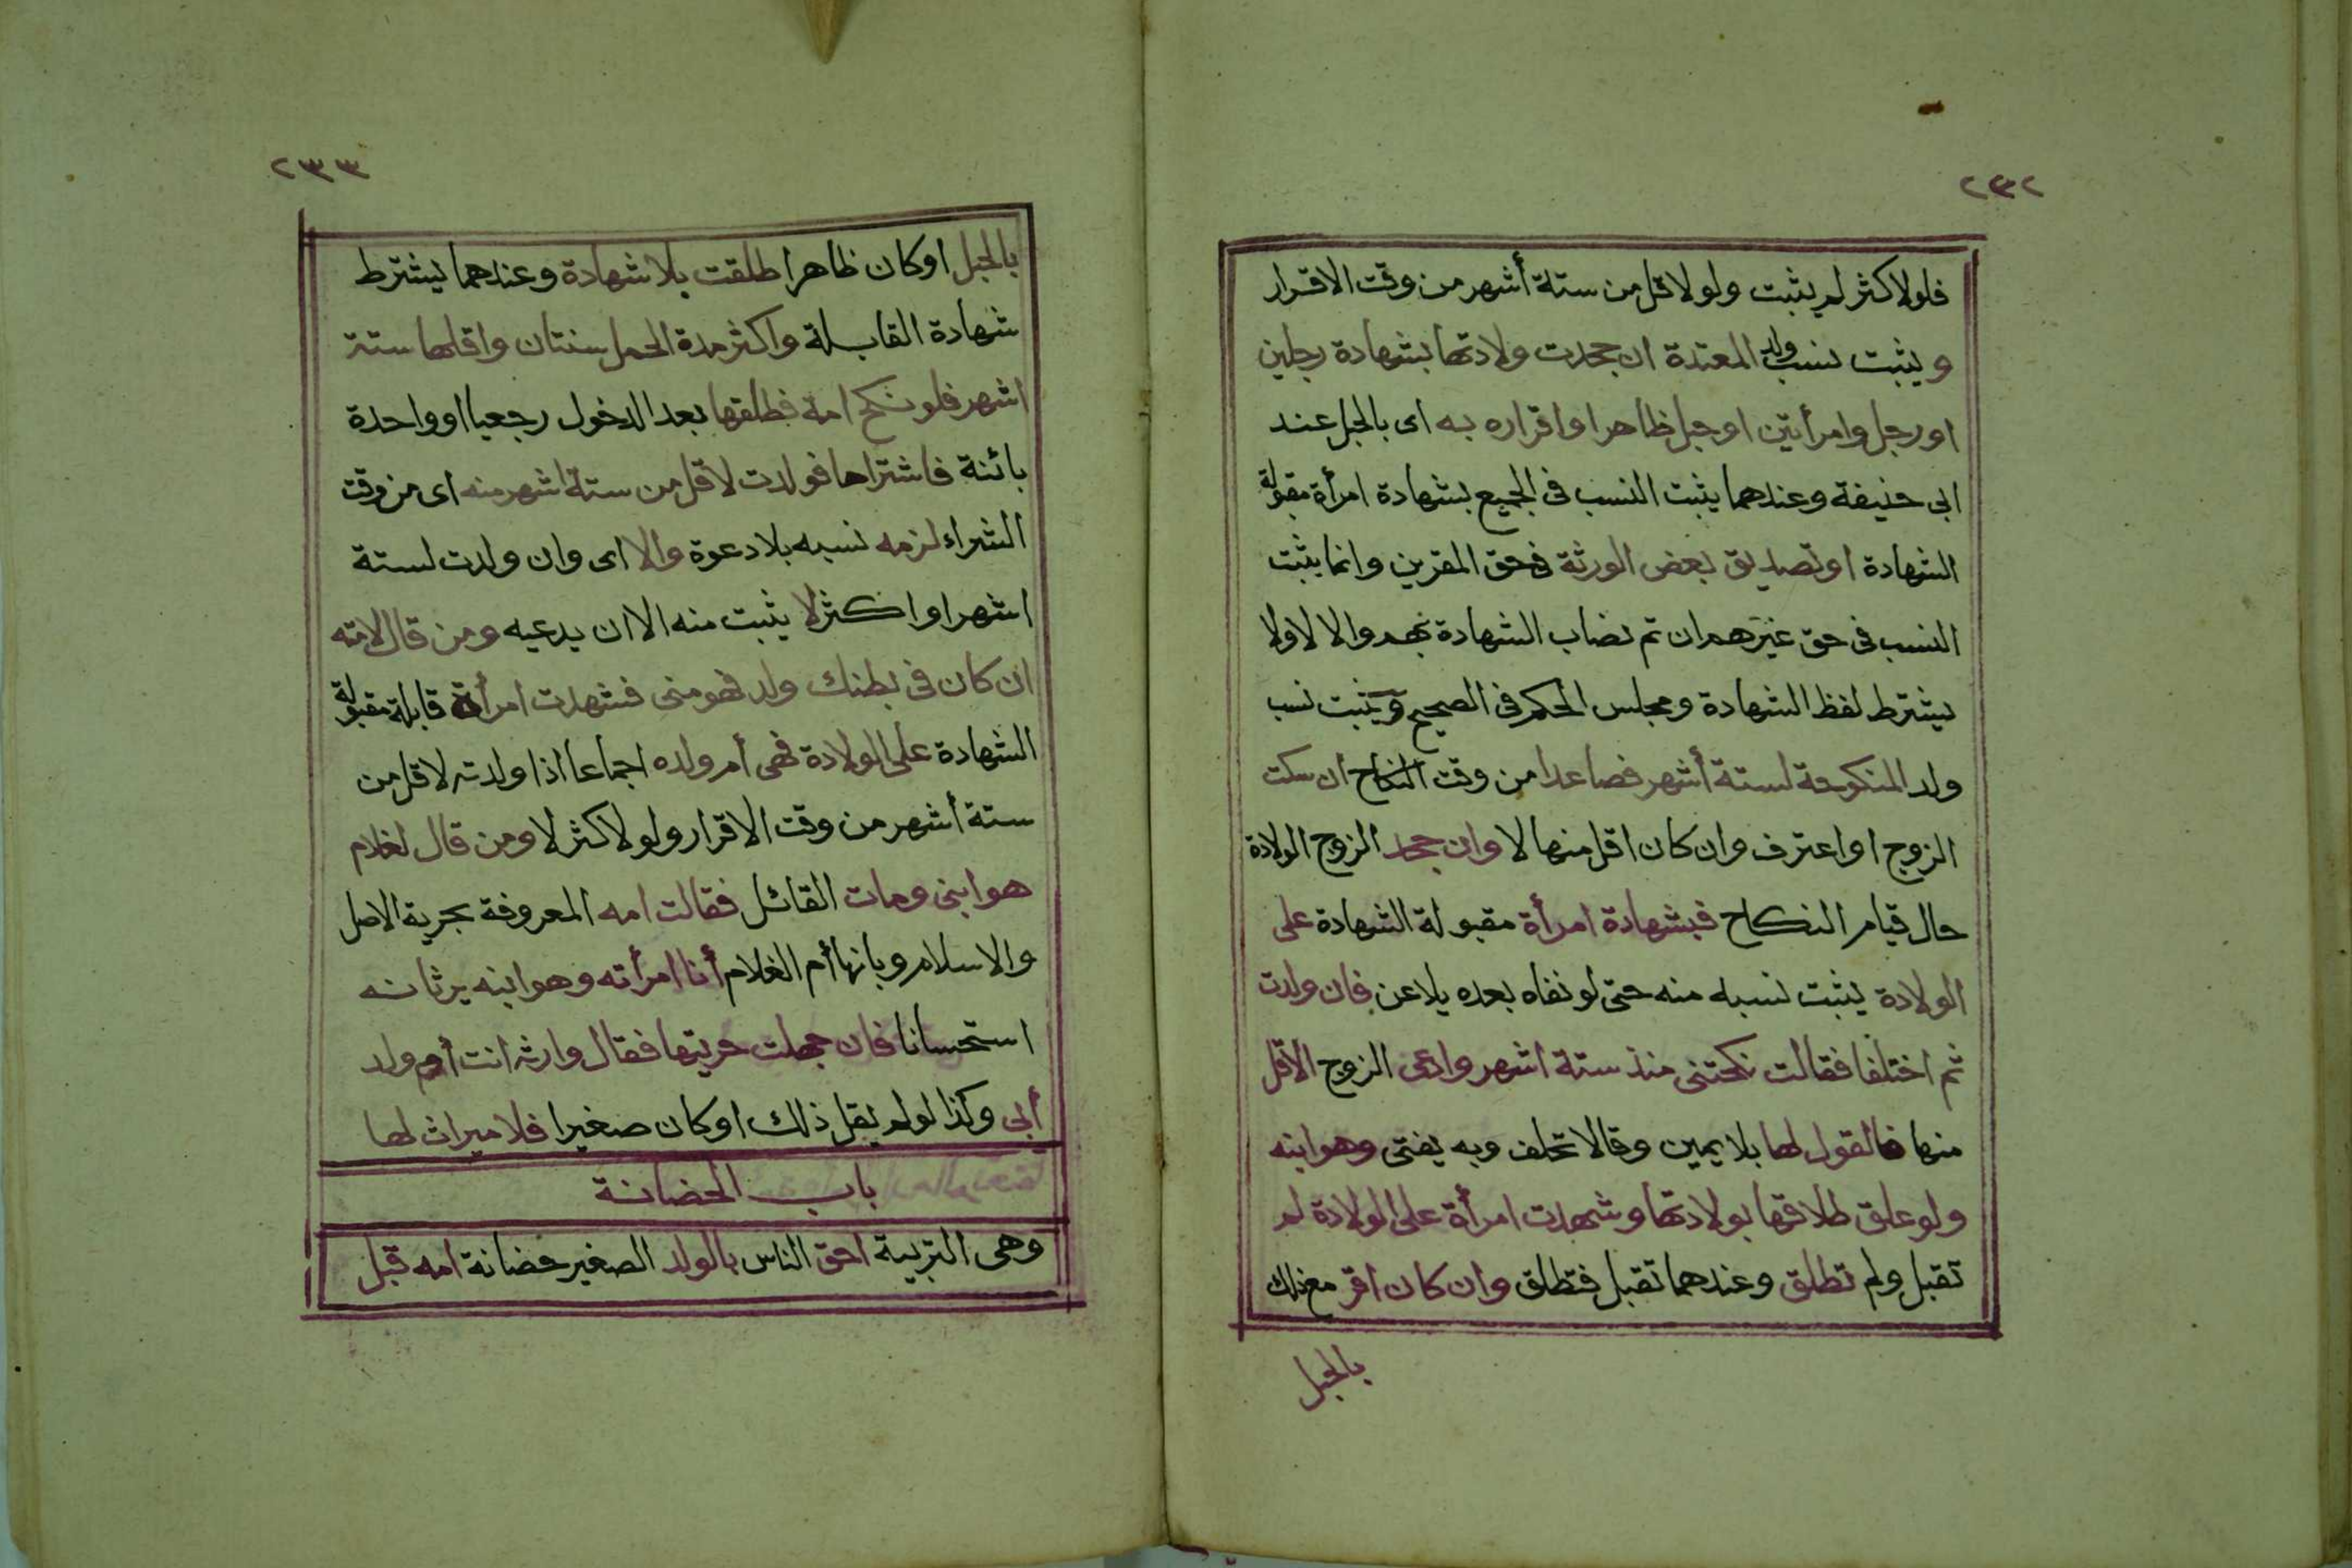 ٢٣٢
فلولاكثر لم يثبت ولو لاقل من ستة أشهر من وقت الاقرار
ويثبت نسب ولد المعتدة ان جحدت ولادتها بشهادة رجلين
او رجل وامرأتين او حبل ظاهر او اقراره به اى بالحبل عند
ابى حنيفة وعندهما يثبت النسب فى الجميع بشهادة امرأة مقبولة
الشهادة او تصديق بعض الورثة فى حق المقرين وانما يثبت
النسب فى حق غيرهم ان تم نصاب الشهادة بهم والا لا ولا
يشترط لفظ الشهادة ومجلس الحكم فى الصحيح ويثبت نسب
ولد المنكوحة لستة أشهر فصاعدا من وقت النكاح ان سكت
الزوج او اعترف وان كان اقل منها لا وان جحد الزوج الولادة
حال قيام النكاح فبشهادة امرأة مقبولة الشهادة على
الولادة يثبت نسبه منه حتى لو نفاه بعده يلاعن فان ولدت
ثم اختلفا فقالت نكحتنى منذ ستة اشهر وادعى الزوج الاقل
منها فالقول لها بلا يمين وقالا تحلف وبه يفتى وهو ابنه
ولو علق طلاقها بولادتها وشهدت امرأة على الولادة لم
تقبل ولم تطلق وعندهما تقبل فتطلق وان كان اقر مع ذلك
بالحبل
٢٣٣
بالحبل او كان ظاهرا طلقت بلا شهادة وعندهما يشترط
شهادة القابلة واكثر مدة الحمل سنتان واقلها ستة
اشهر فلو نكح امة فطلقها بعد الدخول رجعيا او واحدة
بائنة فاشتراها فولدت لاقل من ستة اشهر منه اى من وقت
الشراء لزمه نسبه بلا دعوة والا اى وان ولدت لستة
اشهر او اكثر لا يثبت منه الا ان يدعيه ومن قال لامته
ان كان فى بطنك ولد فهو منى فشهدت امرأة قابلة مقبولة
الشهادة على الولادة فهى أم ولده اجماعا اذا ولدته لاقل من
ستة أشهر من وقت الاقرار ولو لاكثر لا ومن قال لغلام
هو ابنى ومات القائل فقالت امه المعروفة بحرية الاصل
والاسلام وبانها أم الغلام أنا امرأته وهو ابنه يرثانه
استحسانا فان جهلت حريتها فقال وارثه انت أم ولد
أبى وكذا لو لم يقل ذلك او كان صغيرا فلا ميراث لها
باب الحضانة
وهى التربية احق الناس بالولد الصغير حضانة امه قبل